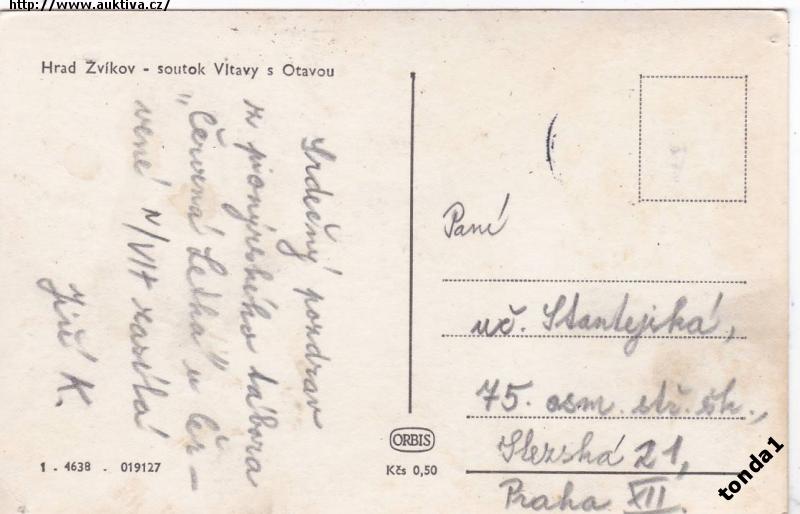 http://www.auktiva.cz/
Hrad Zvíkov - soutok Vltavy s Otavou
Srdečný pozdrav
z pionýrského tábora
"Červená Letka" u Čer-
vené N/VLT zasílá
Jiří K.
Paní
uč. Stantejská,
75. osm. stř. šk.,
Slezská 21,
Praha XII.
ORBIS
Kčs 0,50
1 - 4638 - 019127
tonda1